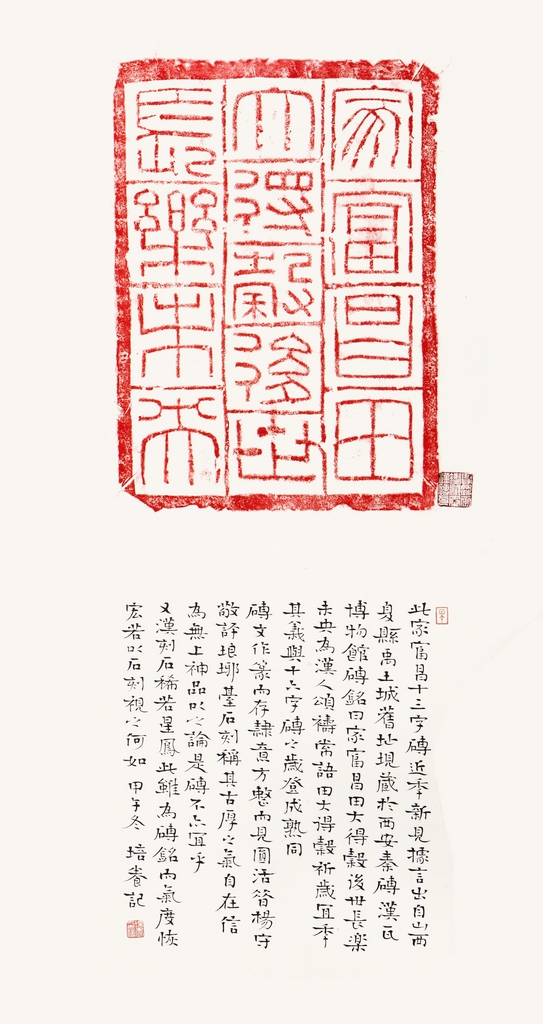 家富昌田
大得穀後世
長樂未央
此家富昌十三字磚近年新見據言出自山西
夏縣禹王城舊址現藏於西安秦磚漢瓦
博物館磚銘曰家富昌田大得穀後世長樂
未央為漢人頌禱常語田大得穀祈歲宜年
其義與十六字磚之歲登成熟同
磚文作篆而存隸意方整而見圓活昔楊守
敬評琅琊臺石刻稱其古厚之氣自在信
為無上神品以之論是磚不亦宜乎
又漢刻石稀若星鳳此雖為磚銘而氣度恢
宏若以石刻視之何如 甲午冬 培養記